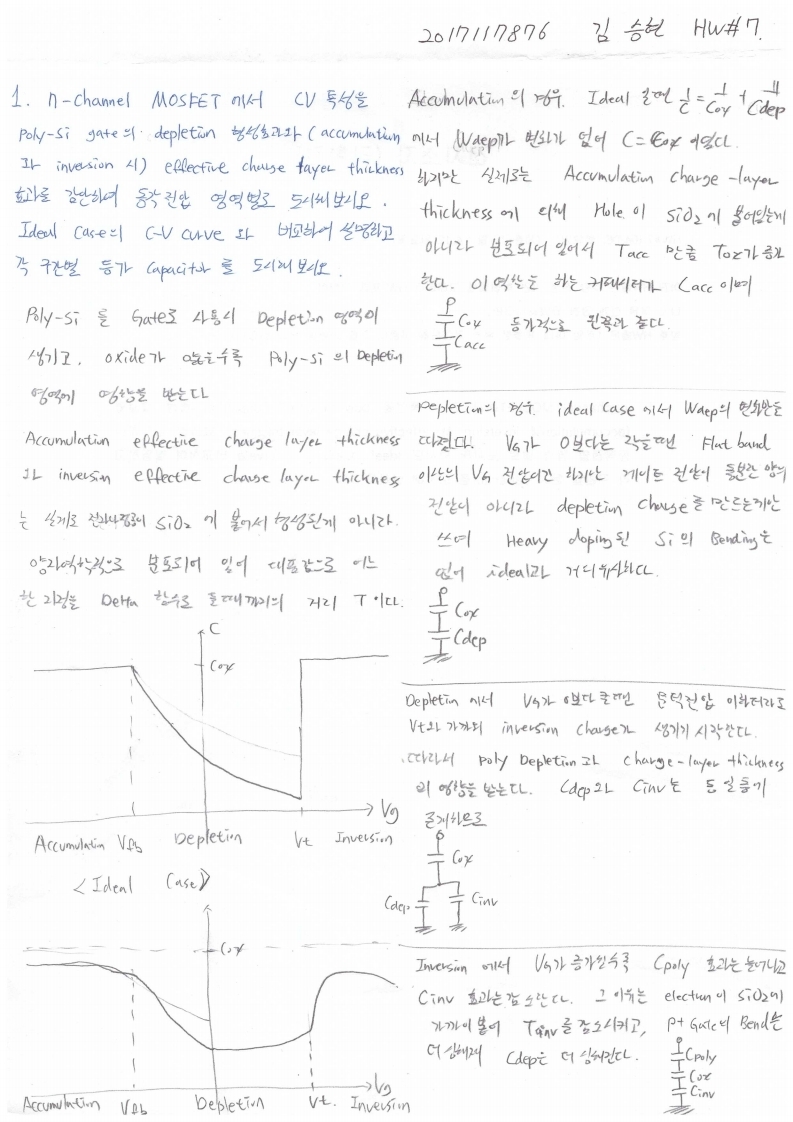 2017117876 김승현 HW#7.
1. n-channel MOSFET 에서 CV 특성을
poly-si gate의 depletion 형성효과와 (accumulation
과 inversion 시) effective charge layer thickness
효과를 감안하여 동작전압 영역별로 도시해보시오.
Ideal Case의 C-V curve 와 비교하여 설명하고
각 구간별 등가 Capacitor 를 도시해 보시오.
Poly-Si 를 Gate로 사용시 Depletion 영역이
생기고, oxide가 얇을수록 Poly-Si 의 Depletion
영역에 영향을 받는다
Accumulation effective charge layer thickness
과 inversion effective charge layer thickness
는 실제로 SiO2 에 붙어서 형성된게 아니라.
양자역학적으로 분포되어 있어 대표값으로 어느
한 지점을 Delta 함수로 둘때까지의 거리 T 이다.
C
Cox
Vg
Accumulation Vfb Depletion Vt Inversion
<Ideal Case>
Cox
Vg
Accumulation Vfb Depletion Vt. Inversion
Accumulation의 경우. Ideal 일땐 1/C = 1/Cox + 1/Cdep
에서 Wdep가 변화가 없어 C=Cox 이었다.
하지만 실제로는 Accumulation charge-layer
thickness에 의해 Hole이 SiO2에 붙어있는게
아니라 분포되어 있어서 Tacc 만큼 Tox가 증가
한다. 이 역할을 하는 커패시터가 Cacc 이며
Cox 등가적으로 왼쪽과 같다.
Cacc
Depletion의 경우. ideal case 에서 Wdep의 변화만을
따졌다. VG가 0보다는 작을땐 Flat band
이상의 VG 전압이긴 하지만 게이트 전압이 충분한 양의
전압이 아니라 depletion charge를 만드는게만
쓰며 Heavy doping된 Si의 Bending은
없어 ideal과 거의 유사하다.
Cox
Cdep
Depletion 에서 VG가 0보다 클땐 문턱전압 이하더라도
Vt와 가까워 inversion charge가 생기기 시작한다.
따라서 Poly Depletion과 charge-layer thickness
의 영향을 받는다. Cdep와 Cinv는 동일
존재하므로
Cox
Cdep Cinv
Inversion 에서 VG가 증가할수록 Cpoly 효과는 늘어나고
Cinv 효과는 감소한다. 그 이유는 electron이 SiO2에
가까이 붙어 Tinv를 감소시키고, P+ Gate의 Bend는
더 심해져 Cdep는 더 심해진다.
Cpoly
Cox
Cinv